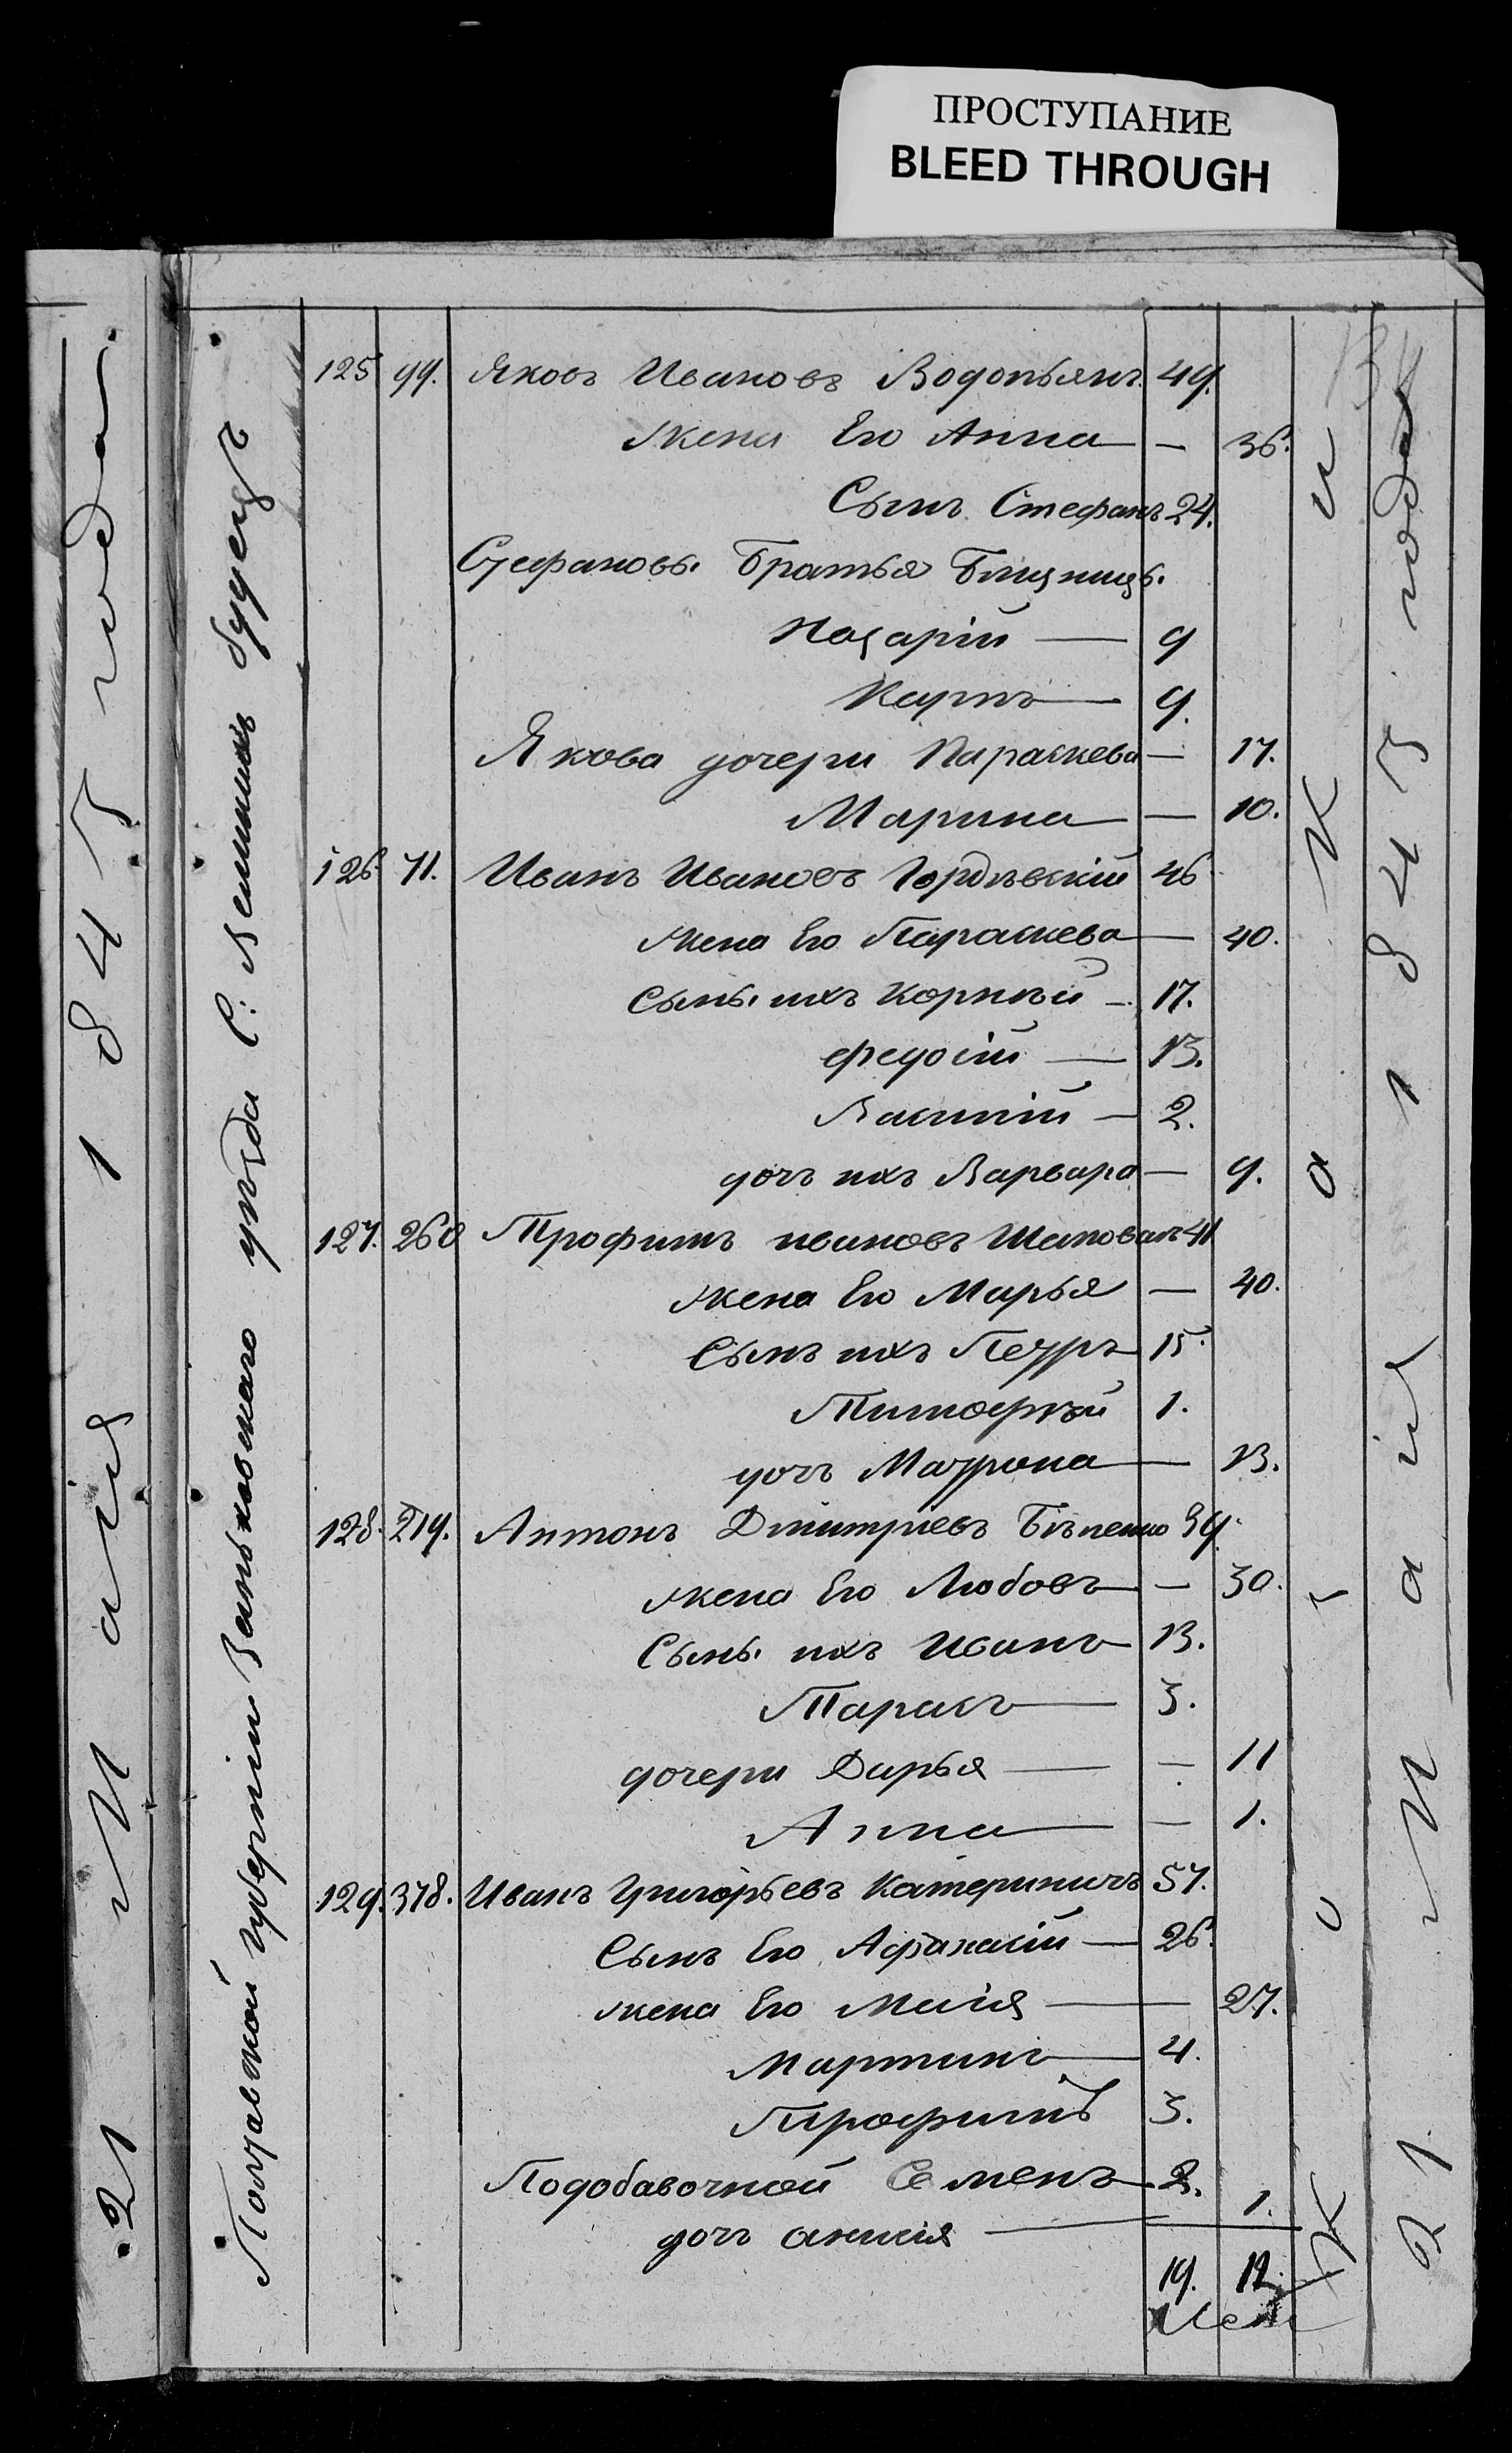 ПРОСТУПАНИЕ
BLEED THROUGH
21 Мая 1847 года.
Полтавской губерніи Заньковскаго уезда С: будетъ
125 99. Яковъ Ивановъ Водопьянъ 49.
Жена Его Анна — 36.
Сынъ Стефанъ 24.
Стефановы Братья Близнецы
Назарій — 9
Карпъ — 9.
Якова дочери Параскева — 17.
Марина — 10.
126. 71. Иванъ Ивановъ Гордѣвскій 46
жена Его Параскева — 40.
Сыны ихъ Корнѣй — 17.
Федосій — 13.
Василій — 2.
дочь ихъ Варвара — 9.
127. 260 Трофимъ ивановъ Шаповалъ 41
жена Его Марья — 40.
Сынъ ихъ Петръ 15.
Тимофѣй 1.
дочь Матрона — 13.
128. 219. Антонъ Дмитріевъ 39.
жена Его Любовь — 30.
Сыны ихъ Иванъ 13.
Тарасъ — 3.
дочери Дарья — 11
Анна — 1.
129. 378. Иванъ Григорьевъ Катериничъ 57.
Сынъ Его Афанасій — 26.
жена Его — 27.
Мартинъ — 4.
Трофимъ 3.
Подобавочной Семенъ 2.
дочь — 1.
19. 12.
21 Мая 1847 года